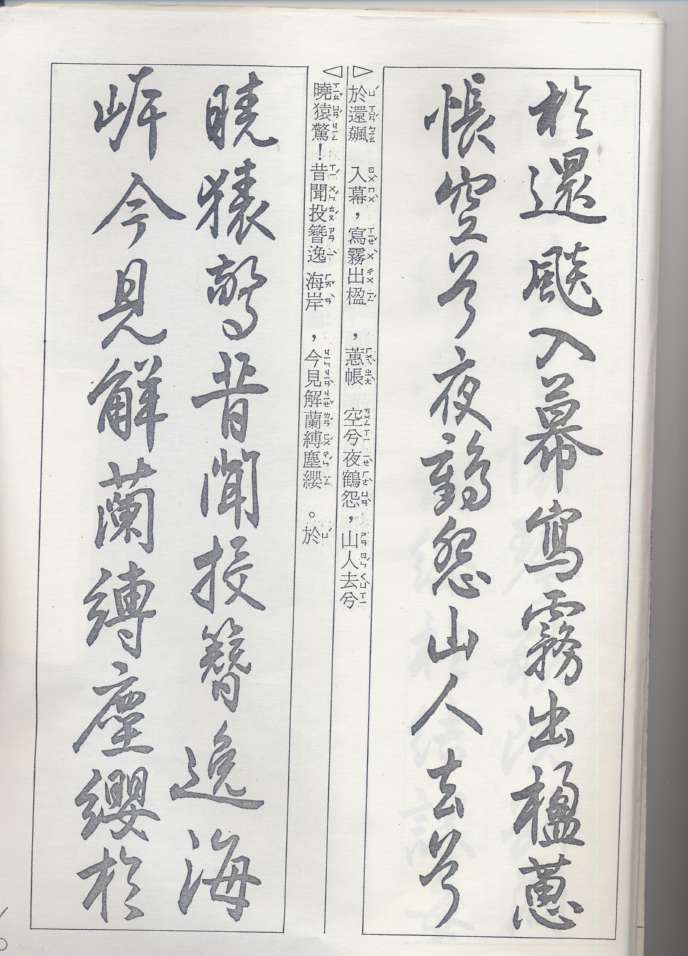 於還飈入幕寫霧出楹蕙
帳空兮夜鶴怨山人去兮
於還飆 入幕,寫霧出楹 ,蕙帳 空兮夜鶴怨,山人去兮
曉猿驚!昔聞投簪逸海岸 ,今見解蘭縛塵纓 。於
曉猿驚昔聞投簪逸海
岸今見解蘭縛塵纓於